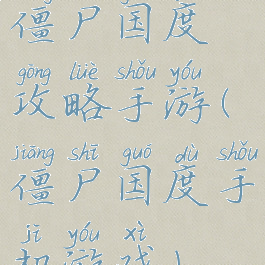 僵尸国度
gōng lüè shǒu yóu
攻略手游(
jiāng shī guó dù shǒu
僵尸国度手
jī yóu xì
机游戏)